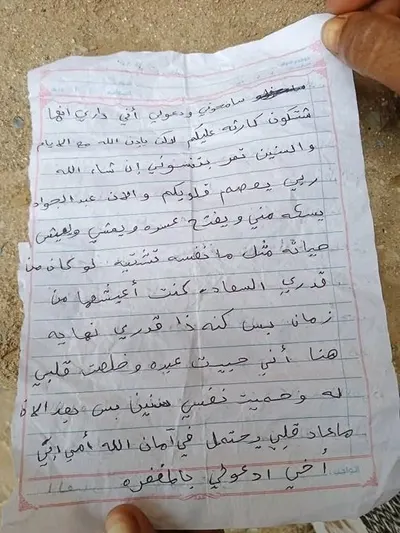 سامحوني ودعولي أني داري انها
شتكون كارثه عليكم لاكن باذن الله مع الايام
والسنين تمر بتنسوني إن شاء الله
ربي يعصم قلوبكم والان عبد الجواد
يسكه مني ويفتح عسره ويمشي ويعيش
حياته مثل ما نفسه تشتيه لو كان من
قدري السعاده كنت أعيشها من
زمان بس كنه ذا قدري نهايه
هنا أني حبيت عبده وخلصت قلبي
له وحميت نفسي سنين بس بعد الان
ماعاد قلبي يحتمل في آمان الله أمي ابي
أخي ادعولي بالمغفره